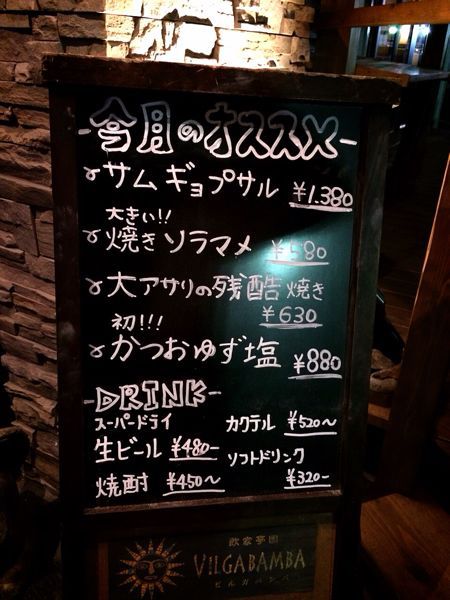 -今月のオススメ-
サムギョプサル ¥1.380
大きい!!
焼きソラマメ ¥580
大アサリの残酷焼き
¥630
初!!!
かつおゆず塩 ¥880
-DRINK-
スーパードライ
生ビール ¥480-
カクテル ¥520~
焼酎 ¥450~
ソフトドリンク
¥320-
VILGABAMBA
ビルカバンバ